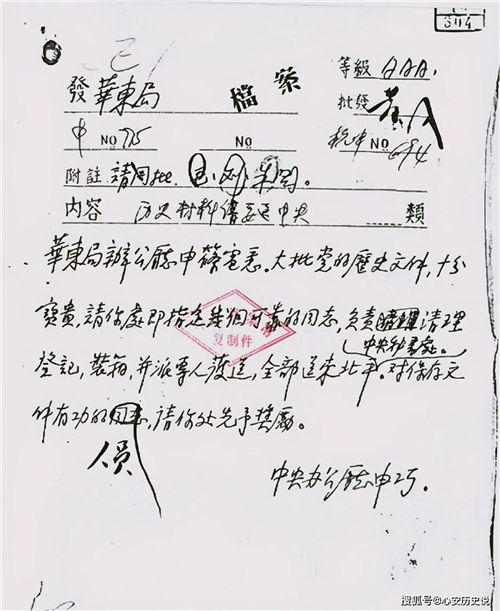 304
發 華東局
檔案
等級 AAA.
批發
申 NO 775
NO
NO 694
附註 請
内容 历史材料 中央 類
華東局辦公廳申篠電悉。大批党的歷史文件，十分
寶貴，請你處即指定幾個可靠的同志，負責清理
中央秘書處。
登記，裝箱，并派專人護送，全部送來北平。对保存文
件有功的同志，請你处先予獎勵。
人员
中央办公廳申巧。
复制件
搜狐号@心安历史说